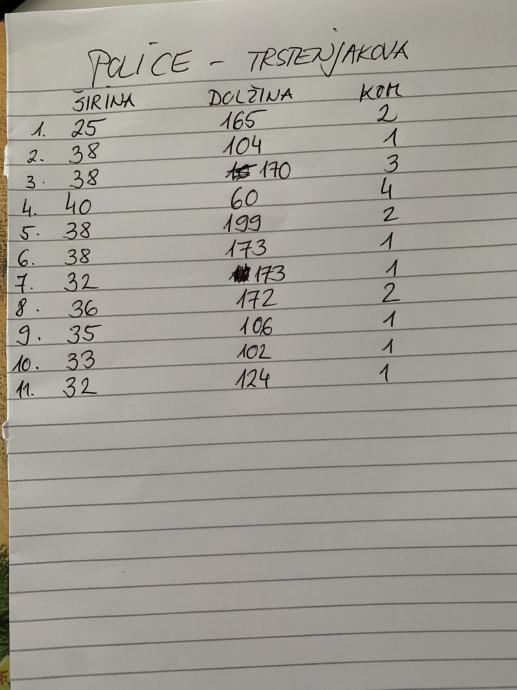 POLICE - TRSTENJAKOVA
ŠIRINA DOLŽINA KOM
1. 25 165 2
2. 38 104 1
3. 38 170 3
4. 40 60 4
5. 38 199 2
6. 38 173 1
7. 32 173 1
8. 36 172 2
9. 35 106 1
10. 33 102 1
11. 32 124 1